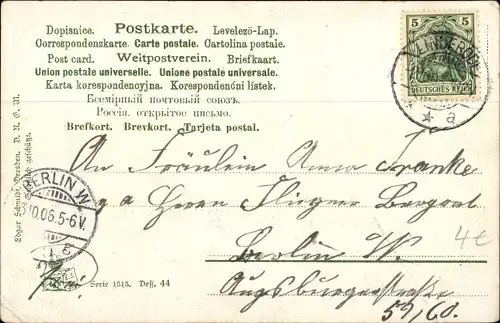 Dopisnice. Postkarte. Levelező-Lap.
Correspondenzkarte. Carte postale. Cartolina postale.
Post card. Weltpostverein. Briefkaart.
Union postale universelle. Unione postale universale.
Karta korespondencyjna. Korespondenční lístek.
Всемірный почтовый союзъ.
Россія. открытое письмо.
Brefkort. Brevkort. Tarjeta postal.
5 5
DEUTSCHES REICH
* a
BERLIN W.
.06.5-6V.
Edgar Schmidt, Dresden. D. R. G. M.
An Fräulein Anna Franke
Herrn
Berlin W.
Augsburgerstrasse
59/60.
4€
Serie 1515. Deß. 44